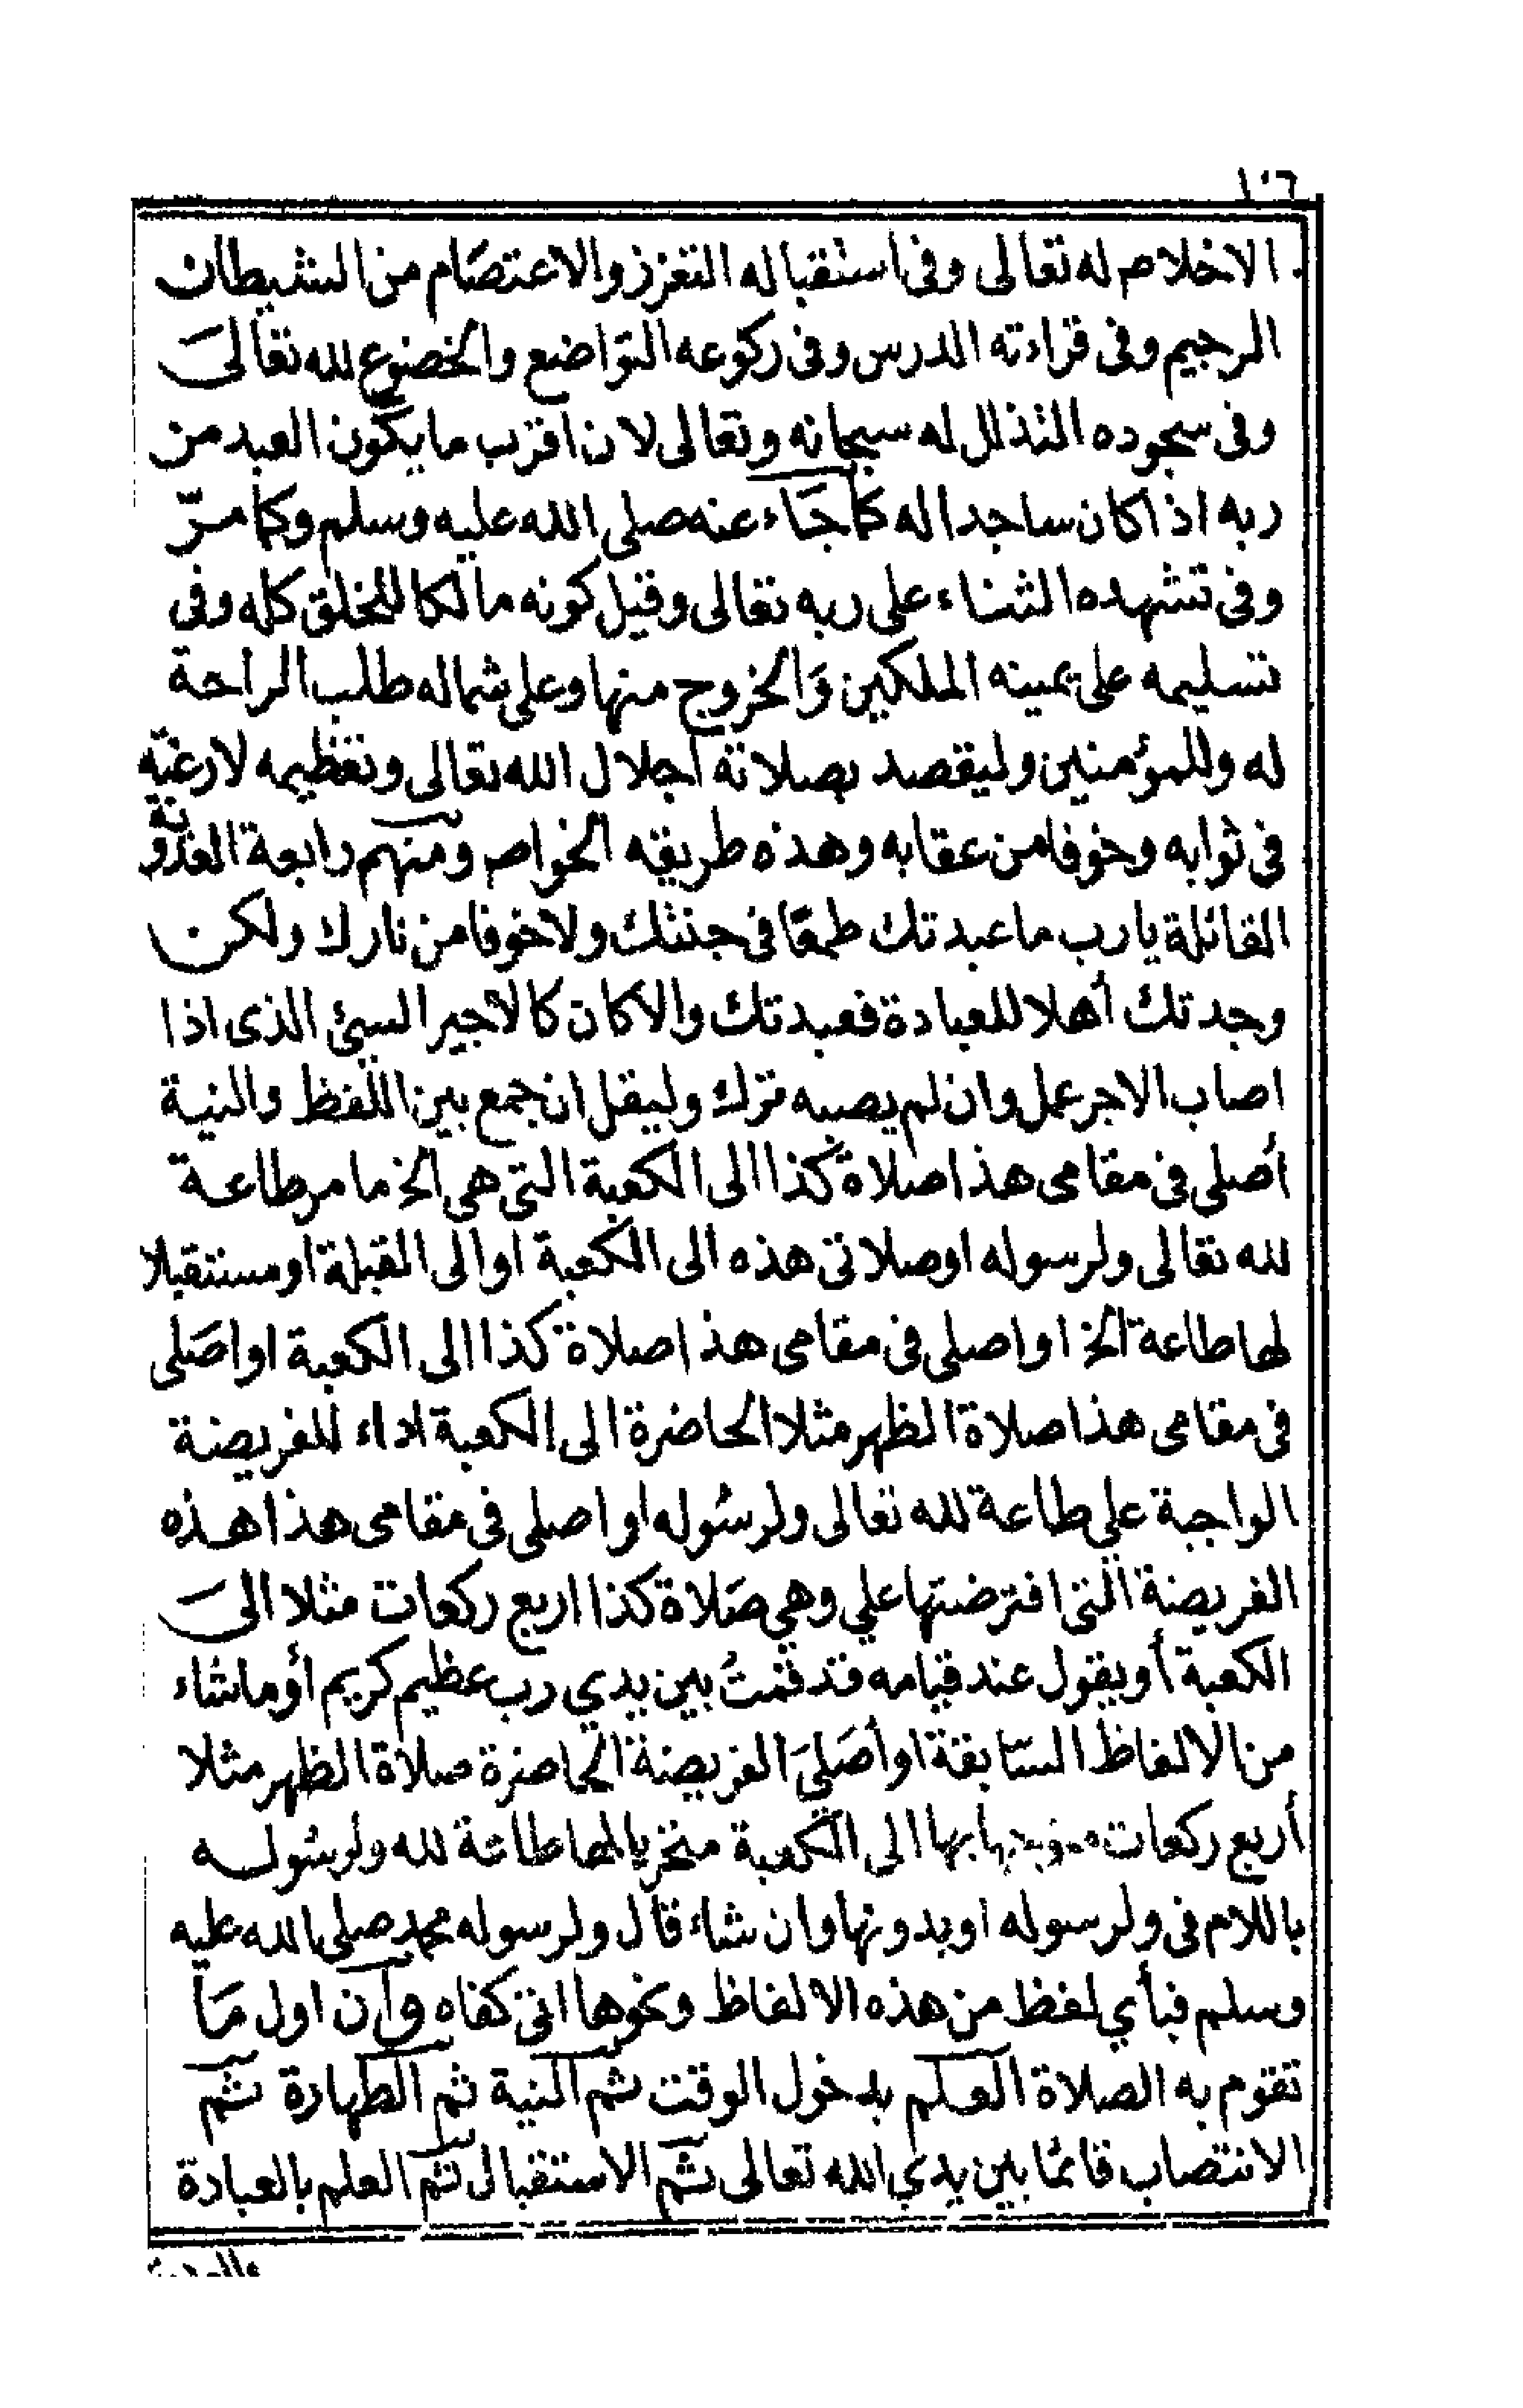 ١٠٦
الاخلاص له تعالى وفى استقباله التعزز والاعتصام من الشيطان
الرجيم وفى قراءته الدرس وفى ركوعه التواضع والخضوع لله تعالى
وفى سجوده التذلل له سبحانه وتعالى لان اقرب ما يكون العبد من
ربه اذا كان ساجدا له كما جاء عنه صلى الله عليه وسلم وكما مرّ
وفى تشهده الثناء على ربه تعالى وقيل كونه مالكا للخلق كله وفى
تسليمه على يمينه الملكين والخروج منها وعلى شماله طلب الراحة
له وللمؤمنين وليقصد بصلاته اجلال الله تعالى وتعظيمه لا رغبة
فى ثوابه وخوفا من عقابه وهذه طريقه الخواص ومنهم رابعة العدوية
القائلة يا رب ما عبدتك طمعًا فى جنتك ولا خوفا من نارك ولكن
وجدتك أهلا للعبادة فعبدتك والا كان كالاجير السيئ الذى اذا
اصاب الاجر عمل وان لم يصبه ترك وليقل ان جمع بين اللفظ والنية
أصلى فى مقامى هذا صلاة كذا الى الكعبة التى هى الخ ما مر طاعة
لله تعالى ولرسوله او صلاتى هذه الى الكعبة او الى القبلة او مستقبلا
لها طاعة الخ او اصلى فى مقامى هذا صلاة كذا الى الكعبة او اصَلى
فى مقامى هذا صلاة الظهر مثلا الحاضرة الى الكعبة اداء للفريضة
الواجبة علي طاعة لله تعالى ولرسُوله او اصلى فى مقامى هذا هذه
الفريضة التى افترضتها علي وهي صَلاة كذا اربع ركعات مثلا الى
الكعبة أو يقول عند قيامه قد قمتُ بين يدي رب عظيم كريم أو ما شاء
من الالفاظ السّابقة او أصَلىَ الفريضة الحاضرة صلاة الظهر مثلا
أربع ركعات متوجها بها الى الكعبة متحريا لها طاعة لله ولرسُوله
باللام فى ولرسوله او بدونها وان شاء قال ولرسوله محمد صلى الله عليه
وسلم فبأي لفظ من هذه الالفاظ ونحوها اتى كفاه وان اول مَا
تقوم به الصلاة العلم بدخول الوقت ثم النية ثم الطهارة ثم
الانتصاب قائمًا بين يدي الله تعالى ثم الاستقبال ثم العلم بالعبادة